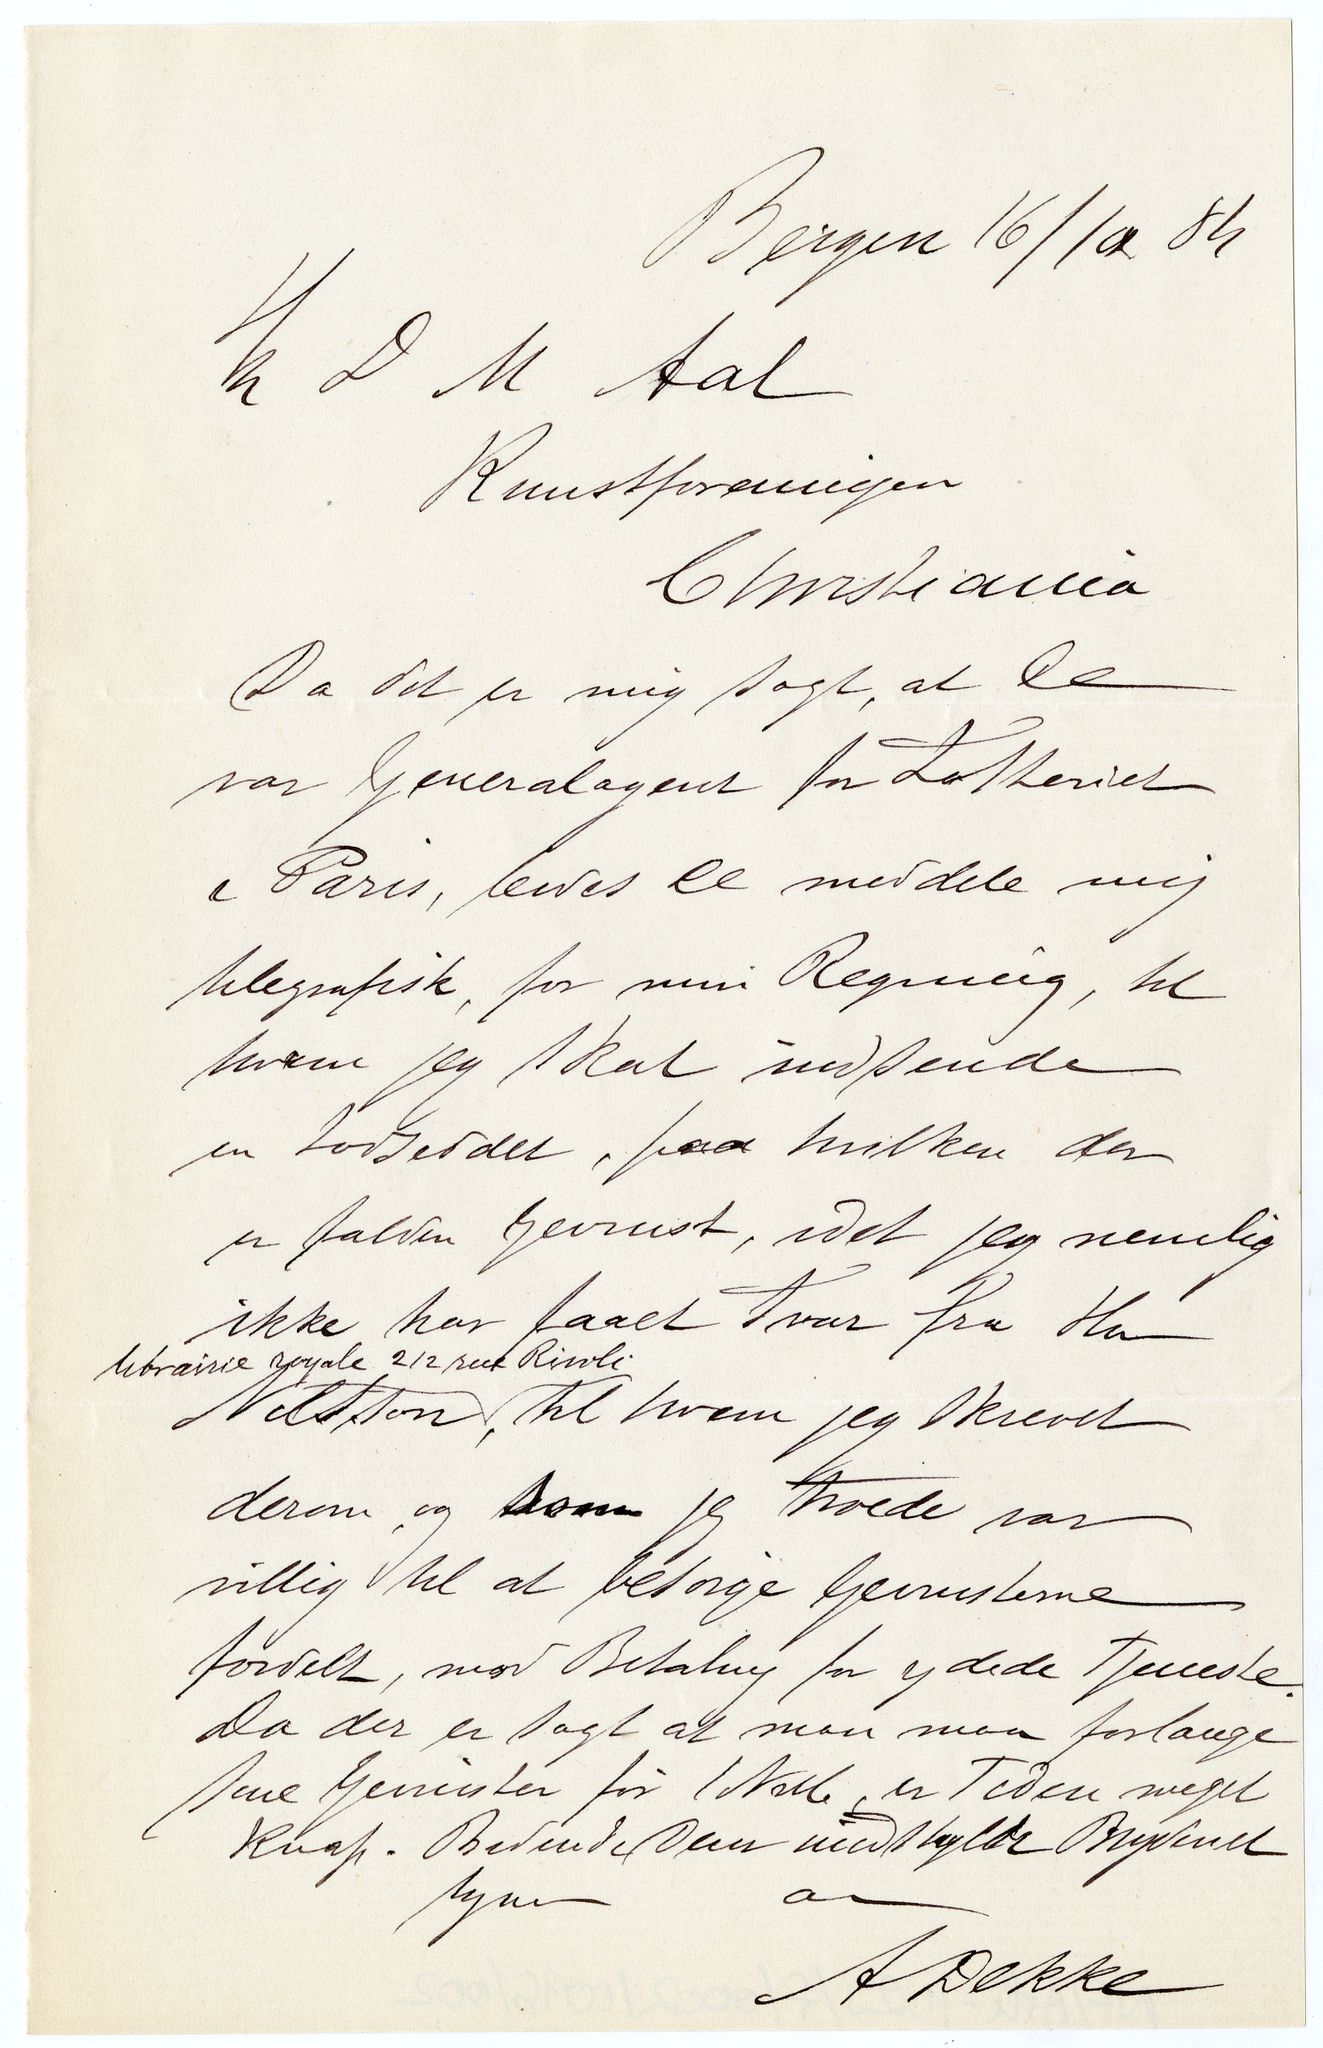 Bergen 16/10 84
Hr D M Aal
Kunstforeningen
Christiania
Da det er mig sagt, at De
var Generalagent for Lotteriet
i Paris, bedes De meddele mig
telegrafisk, for min Regning, til
hvem jeg skal indsende
en Lodseddel, paa hvilken der
er falden Gevinst, idet jeg nemlig
ikke har faaet Svar fra Hr
librairie royale 212 rue Rivoli
Nilsson, til hvem jeg skrevet
derom, og som jeg troede var
villig til at besørge Gevinsterne
fordelt, mod Betaling for ydede Tjeneste.
Da der er sagt at man maa forlange
sine Gevinster før 1 Nvbr, er Tiden meget
knap. Bedende Dem undskylde Bryderiet
tegner
A Dekke